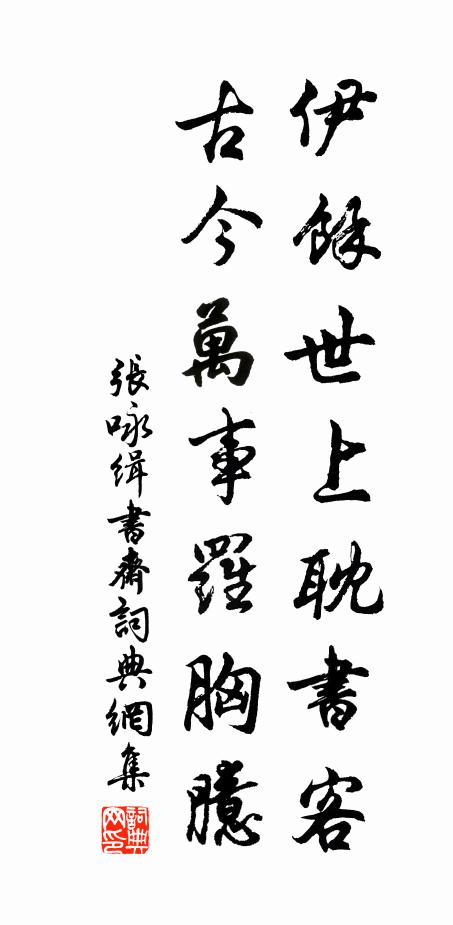 伊餘世上耽書客
古今萬事羅胸臆
張咏緝書齋詞典網集
詞典网印